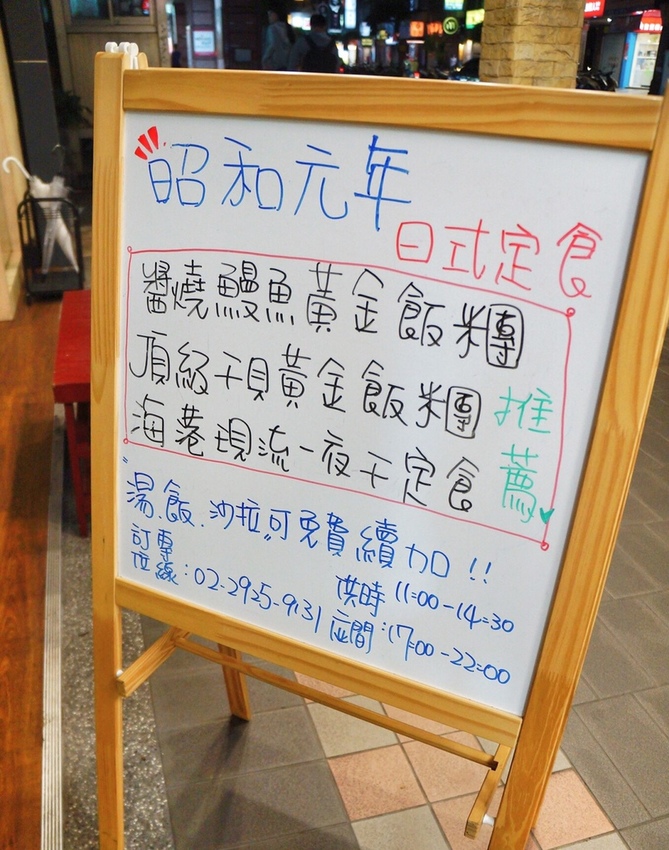 昭和元年
日式定食
醬燒鰻魚黃金飯糰
頂級干貝黃金飯糰
海港現流一夜干定食
推薦
"湯、飯、沙拉"可免費續加!!
訂位專線:02-2925-9131
供應時間:11:00-14:30
17:00-22:00